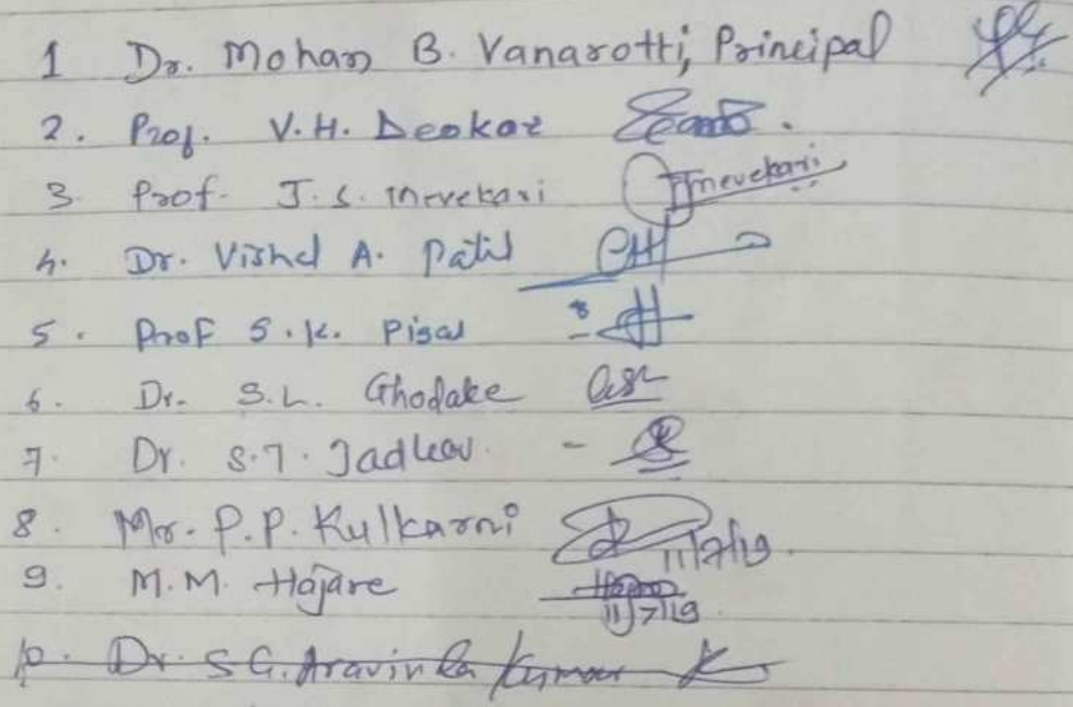 1 Dr. Mohan B. Vanarotti, Principal
2. Prof. V.H. Deokar
3. Prof. J.S. Inevekari Jnevekari
4. Dr. Vishal A. Patil
5. Prof S.K. Pisal
6. Dr. S.L. Ghodake
7. Dr. S.T. Jadhav.
8. Mr. P.P. Kulkarni 11/7/19.
9. M.M. Hajare 11/7/19.
10. Dr. S G. Aravinda Kumar